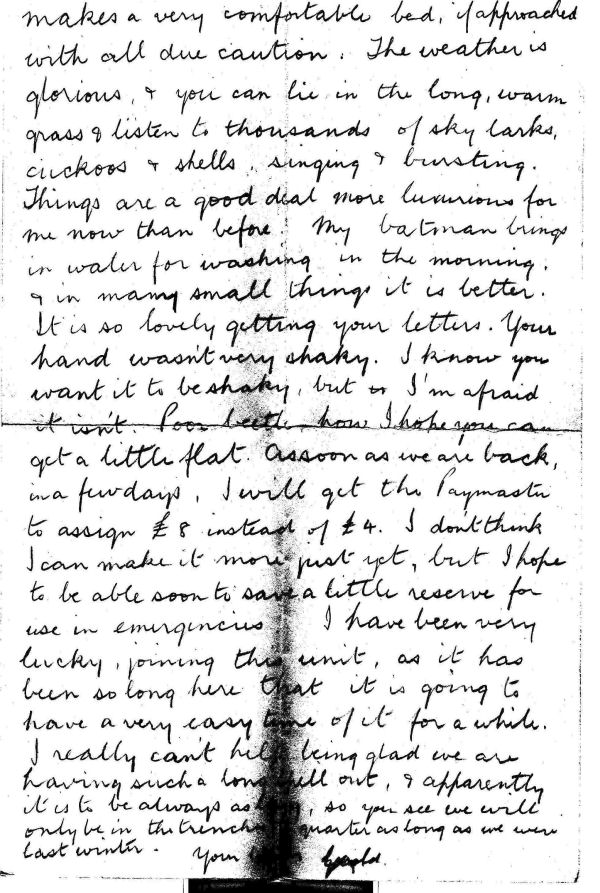 makes a very comfortable bed, if approached
with all due caution. The weather is
glorious, & you can lie in the long, warm
grass & listen to thousands of sky larks,
cuckoos & shells, singing & bursting.
Things are a good deal more luxurious for
me now than before. My batman brings
in water for washing in the morning,
& in many small things it is better.
It is so lovely getting your letters. Your
hand wasn't very shaky. I know you
want it to be shaky, but I'm afraid
it isn't. Poor beetle how I hope you can
get a little flat. As soon as we are back,
in a few days, I will get the Paymaster
to assign £8 instead of £4. I don't think
I can make it more just yet, but I hope
to be able soon to save a little reserve for
use in emergencies. I have been very
lucky, joining this unit, as it has
been so long here that it is going to
have a very easy time of it for a while.
I really can't help being glad we are
having such a long spell out, & apparently
it is to be always as long, so you see we will
only be in the trenches quarter as long as we were
last winter. Your